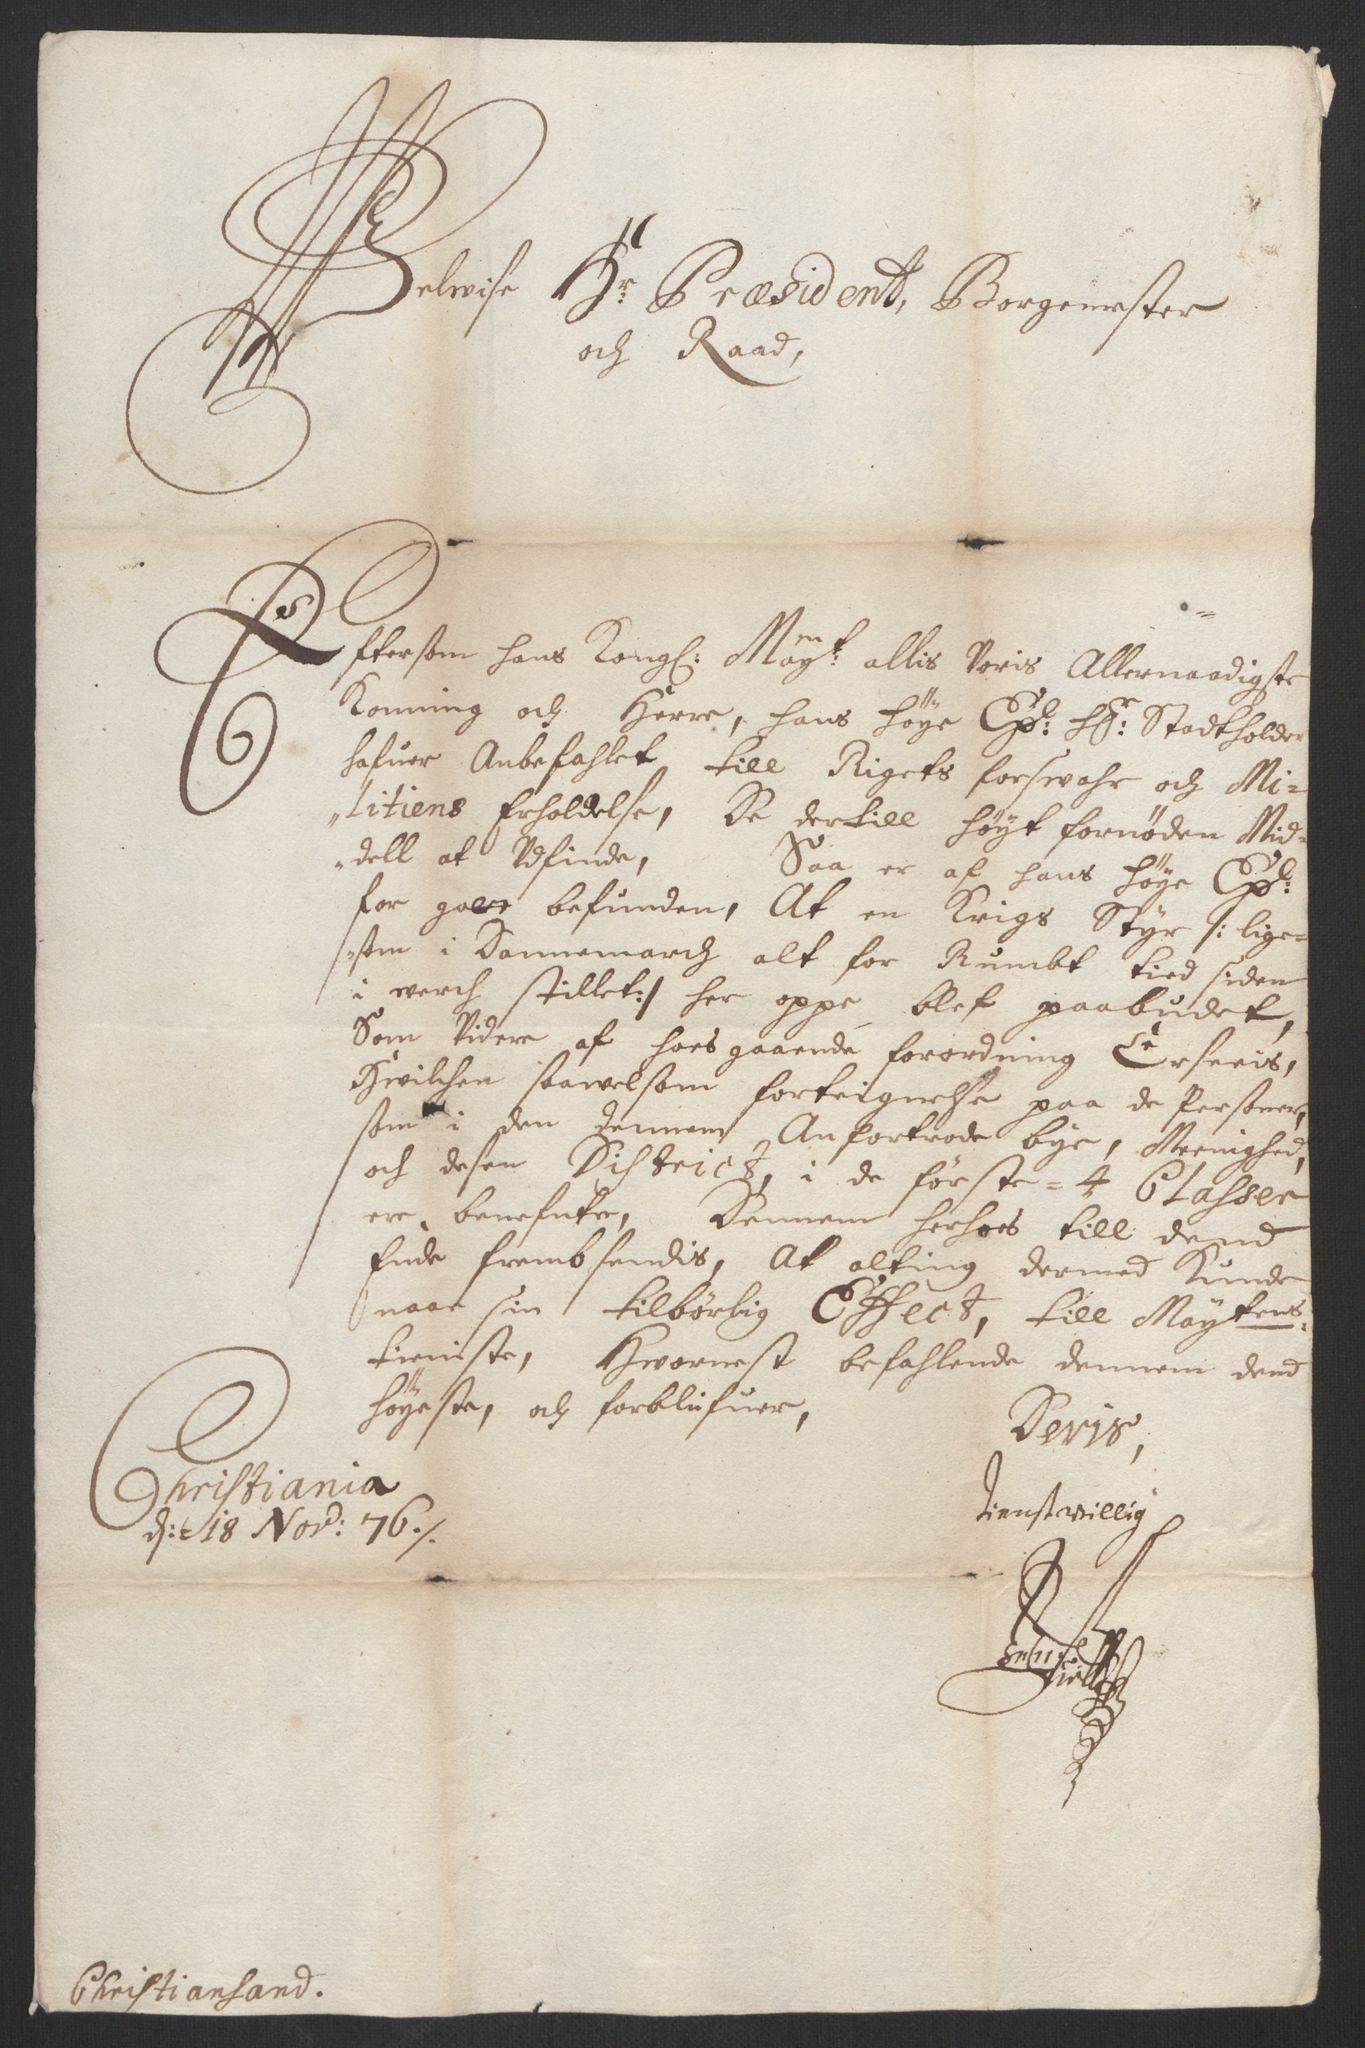 Welwise Hr: Præsident, Borgemester
och Raad,
Eftersom hans Kongl: Mayt: allis Voris Allernaadigste
Konning och Herre, hans høye Exl: Hr: Stadtholder
hafuer Anbefahlet till Rigets forswahr och Mi-
litiens Erholdelse, De dertill høyt fornøden Mid-
dell at Vdfinde, Saa er af hans høye Exl:
for got befunden, At en Krigs Styr /: lige-
som i Dannemarch alt for Rumbt tied siden
i werch stillet :/ her oppe blef paabudet,
Som Videre af hoesgaaende forordning Erseeis,
Hwilchen saawelsom forteignelse paa de Personer,
som i den dennem Anfortrode bye, Meenighed,
och desen District, i de første = 4 Classer
ere benefnte, Dennem herhoes till dend
Ende frembsendis, At alting dermed Kunde
naae sin tilbørlig Effect, till Maytens
tieniste, Hwornest befahlende dennem dend
høyeste, och forblifuer,
Deris,
tienstwillig
Christiania
d: 18 Nov: 76 ./.
Christiansand.